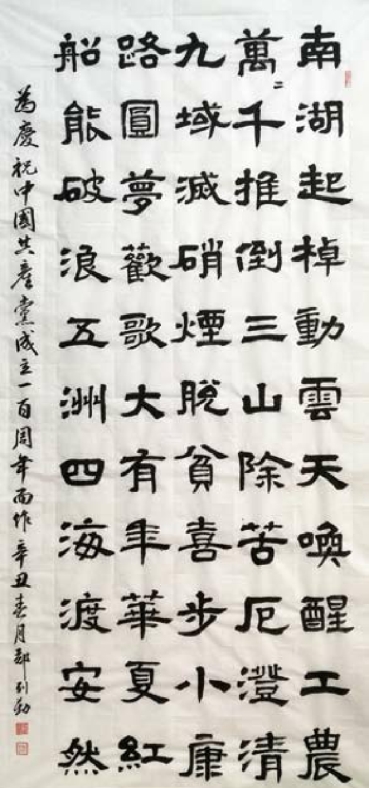 南湖起棹動雲天喚醒工農
萬〻千推倒三山除苦厄澄清
九域滅硝煙脫貧喜步小康
路圓夢歡歌大有年華夏紅
船能破浪五洲四海渡安然
為慶祝中國共產黨成立一百周年而作辛丑春月